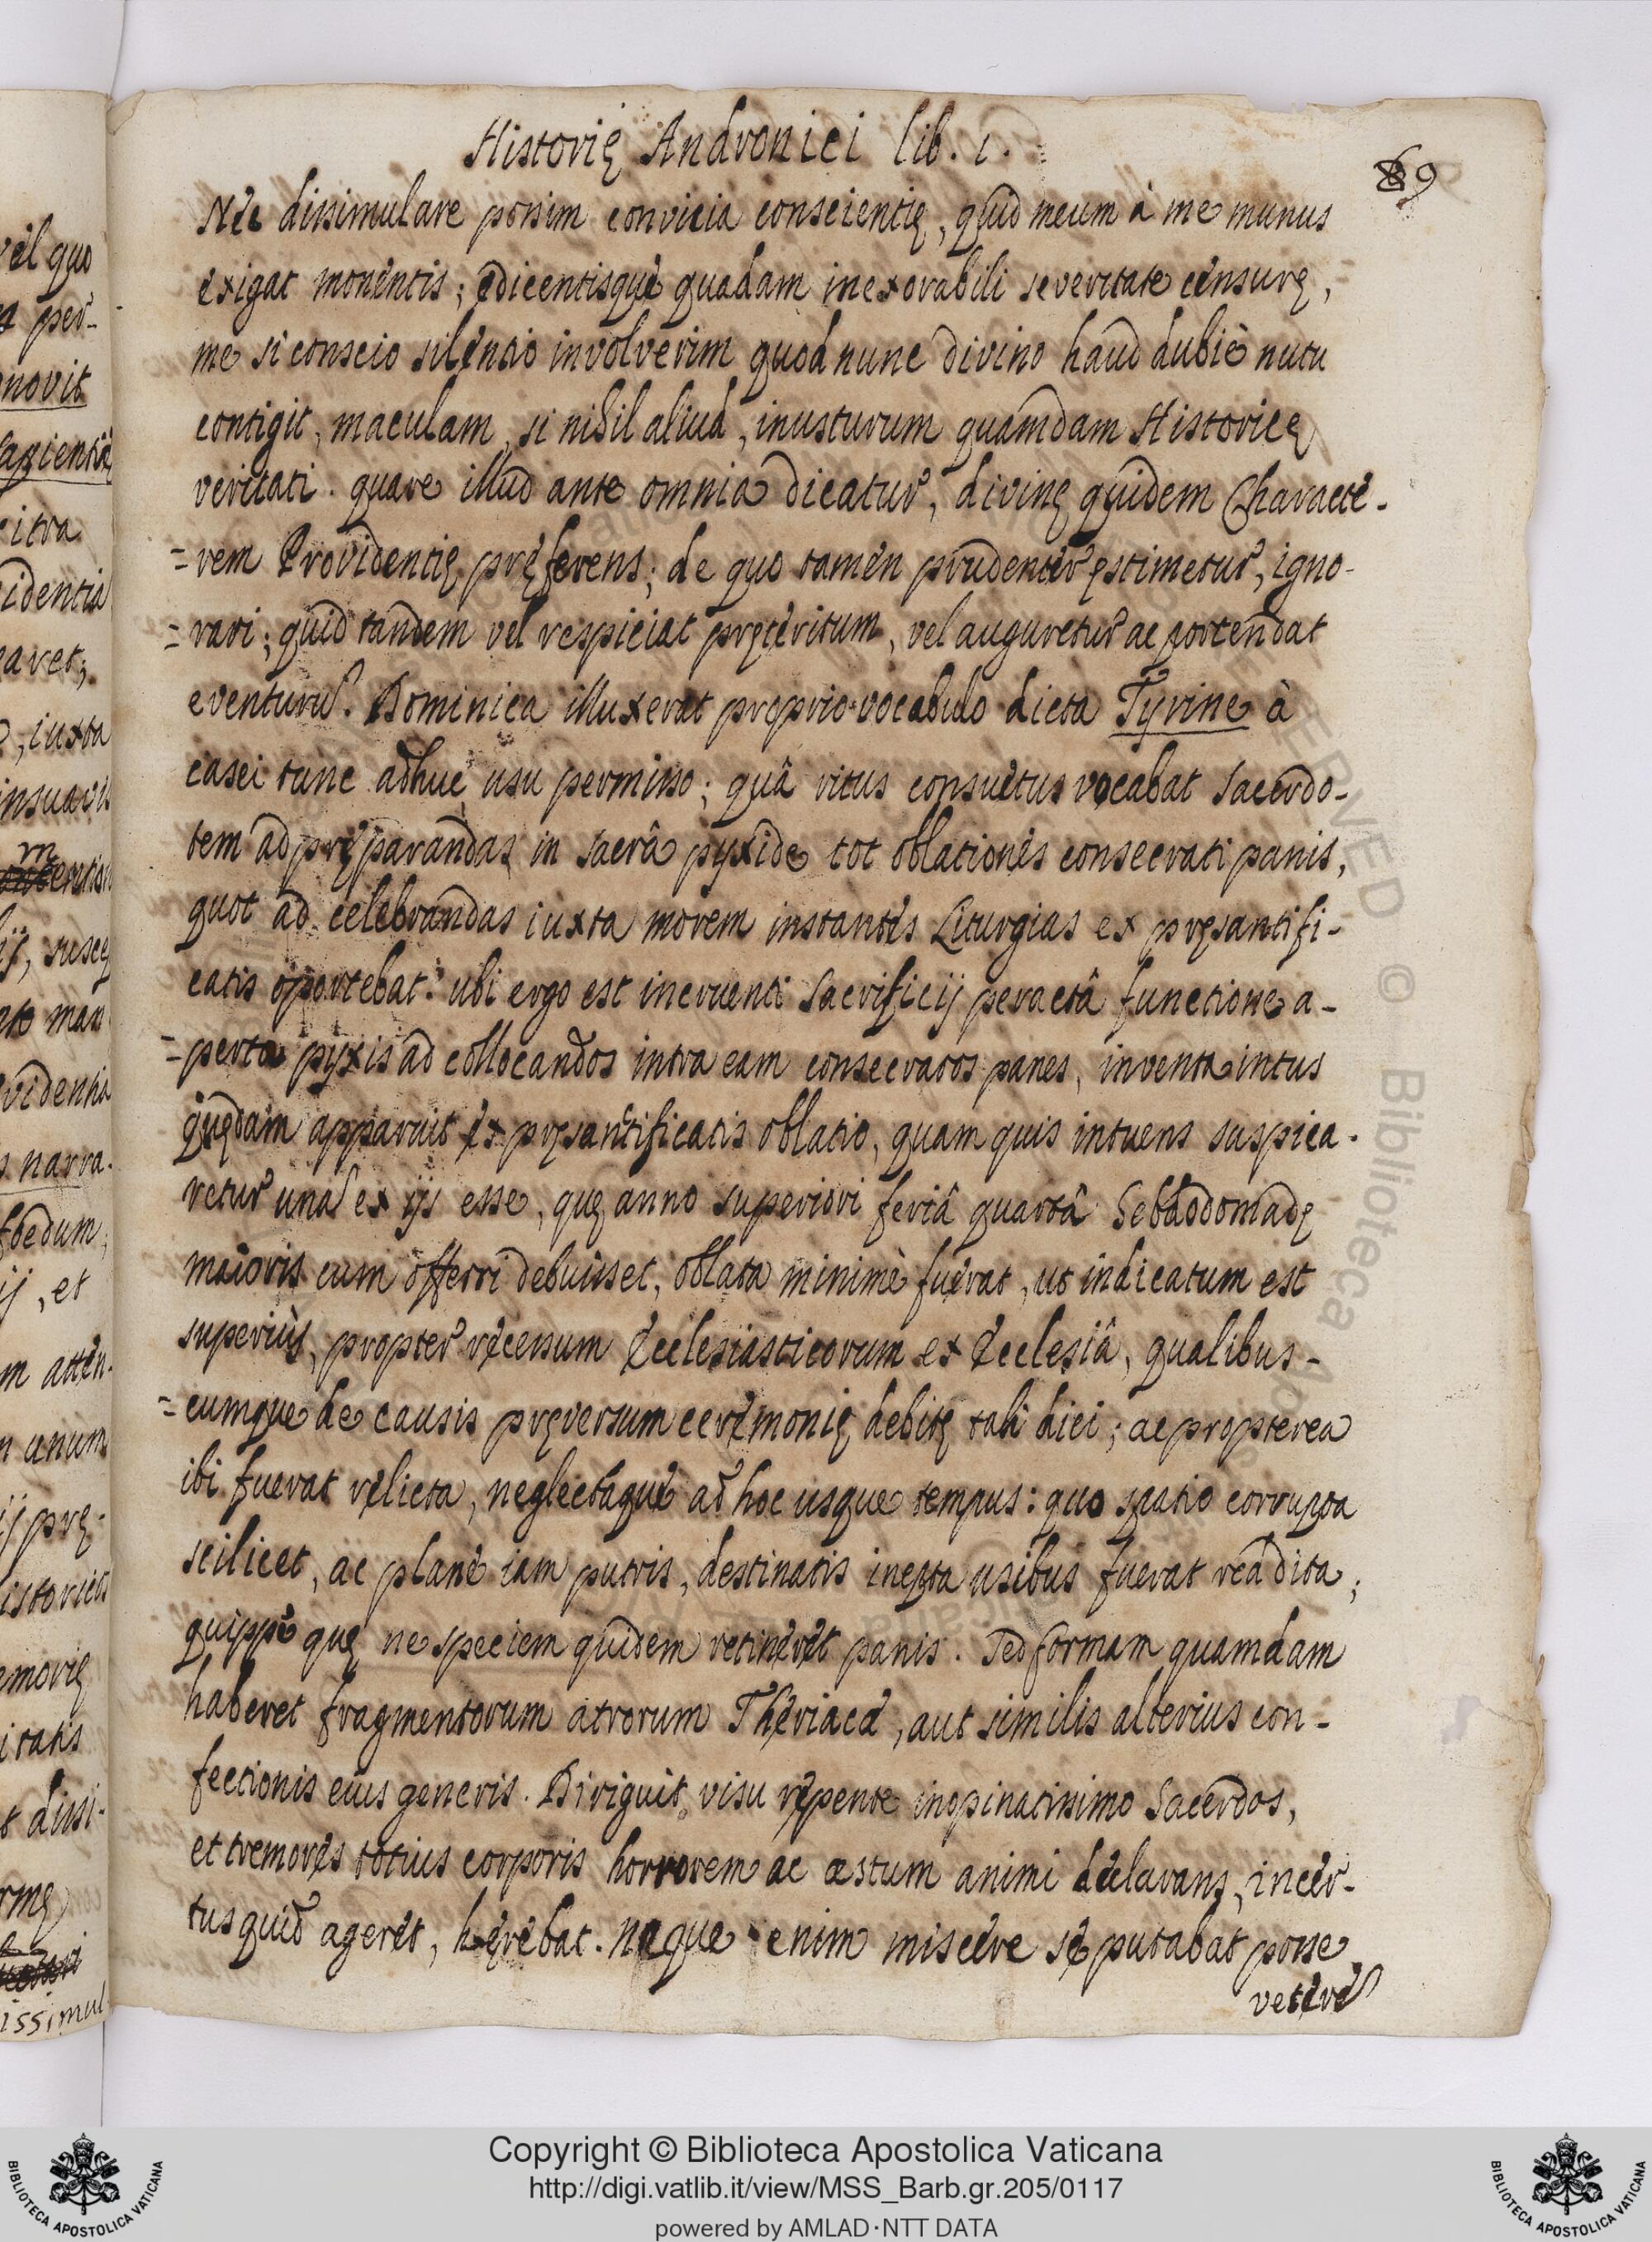 Historię Andronici lib. 1.
89
Nec dissimulare possim convicia conscientię, quid meum à me munus
exigat monentis; edicentisque quadam inexorabili severitate censurę,
me si conscio silentio involverim quod nunc divino haud dubiè nutu
contigit, maculam, si nihil aliud, inusturum quamdam Historicę
veritati. quare illud ante omnia dicatur, divinę quidem Characte-
=rem Providentię pręferens; de quo tamen prudenter ęstimetur, igno-
=rari; quid tandem vel respiciat pręteritum, vel auguretur ac portendat
eventurũ. Dominica illuxerat proprio vocabulo dicta Tyrine à
casei tunc adhuc usu permisso; quâ ritus consuetus vocabat Sacerdo-
tem ad pręparandas in sacrâ pyxide tot oblationes consecrati panis,
quot ad celebrandas iuxta morem instantes Liturgias ex pręsantifi-
catis oportebat. ubi ergo est incruenti Sacrificij peractâ functione a-
=perta pyxis ad collocandos intra eam consecratos panes, inventa intus
quędam apparuit ex pręsantificatis oblatio, quam quis intuens suspica-
retur unã ex ijs esse, quę anno superiori feriâ quartâ Hebdomadę
maioris cum offerri debuisset, oblata minimè fuerat, ut indicatum est
superiùs, propter recensum Ecclesiasticorum ex Ecclesiâ, qualibus-
=cumque de causis pręversum cerimonię debitę tali diei; ac propterea
ibi fuerat relicta, neglectaque ad hoc usque tempus: quo spatio corrupta
scilicet, ac planè iam putris, destinatis inepta usibus fuerat reddita;
quippe quę ne speciem quidem retineret panis. Sed formam quamdam
haberet fragmentorum atrorum Theriacæ, aut similis alterius con-
fectionis eius generis. Diriguit visu repente inopinatissimo Sacerdos,
et tremores totius corporis horrorem ac æstum animi declarans, incer-
tus quid ageret, hęrebat. neque enim miscere se putabat posse
veterẽ
vel quo
per-
novit
sapientiâ
citra
identia
aret;
, iuxta
insuavi
m
ij, susce
videntia
narra-
foedum,
ij, et
m atten-
n unum
ij prę-
istorici
emorię
itatis
t dissi-
issimul
Copyright © Biblioteca Apostolica Vaticana
http://digi.vatlib.it/view/MSS_Barb.gr.205/0117
powered by AMLAD·NTT DATA
BIBLIOTECA APOSTOLICA VATICANA
BIBLIOTECA APOSTOLICA VATICANA